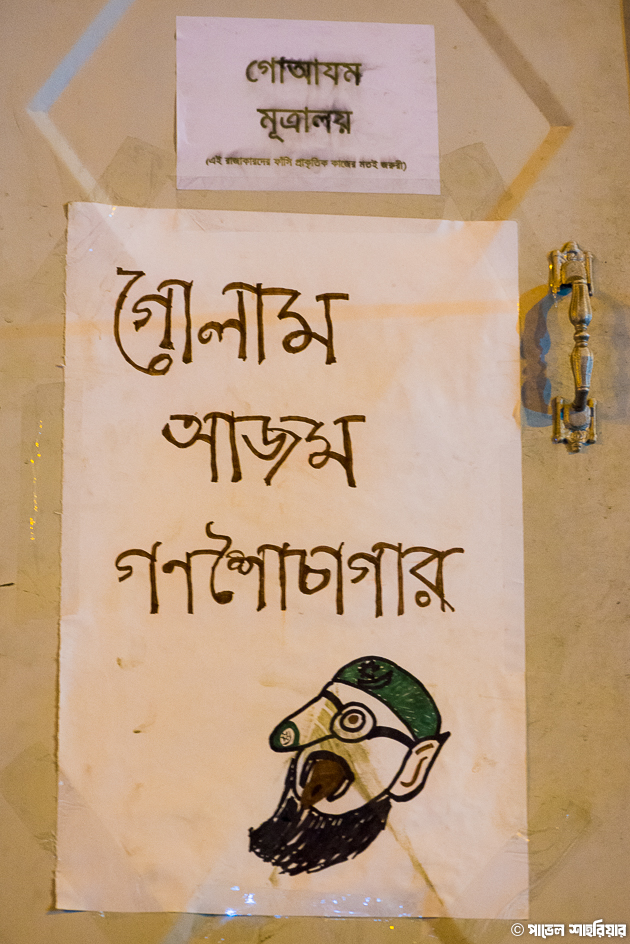 গোআযম
মূত্রালয়
(এই রাজাকারদের ফাঁসি প্রাকৃতিক কাজের মতই জরুরী)
গোলাম
আজম
গণশৌচাগার
© পাভেল শাহরিয়ার